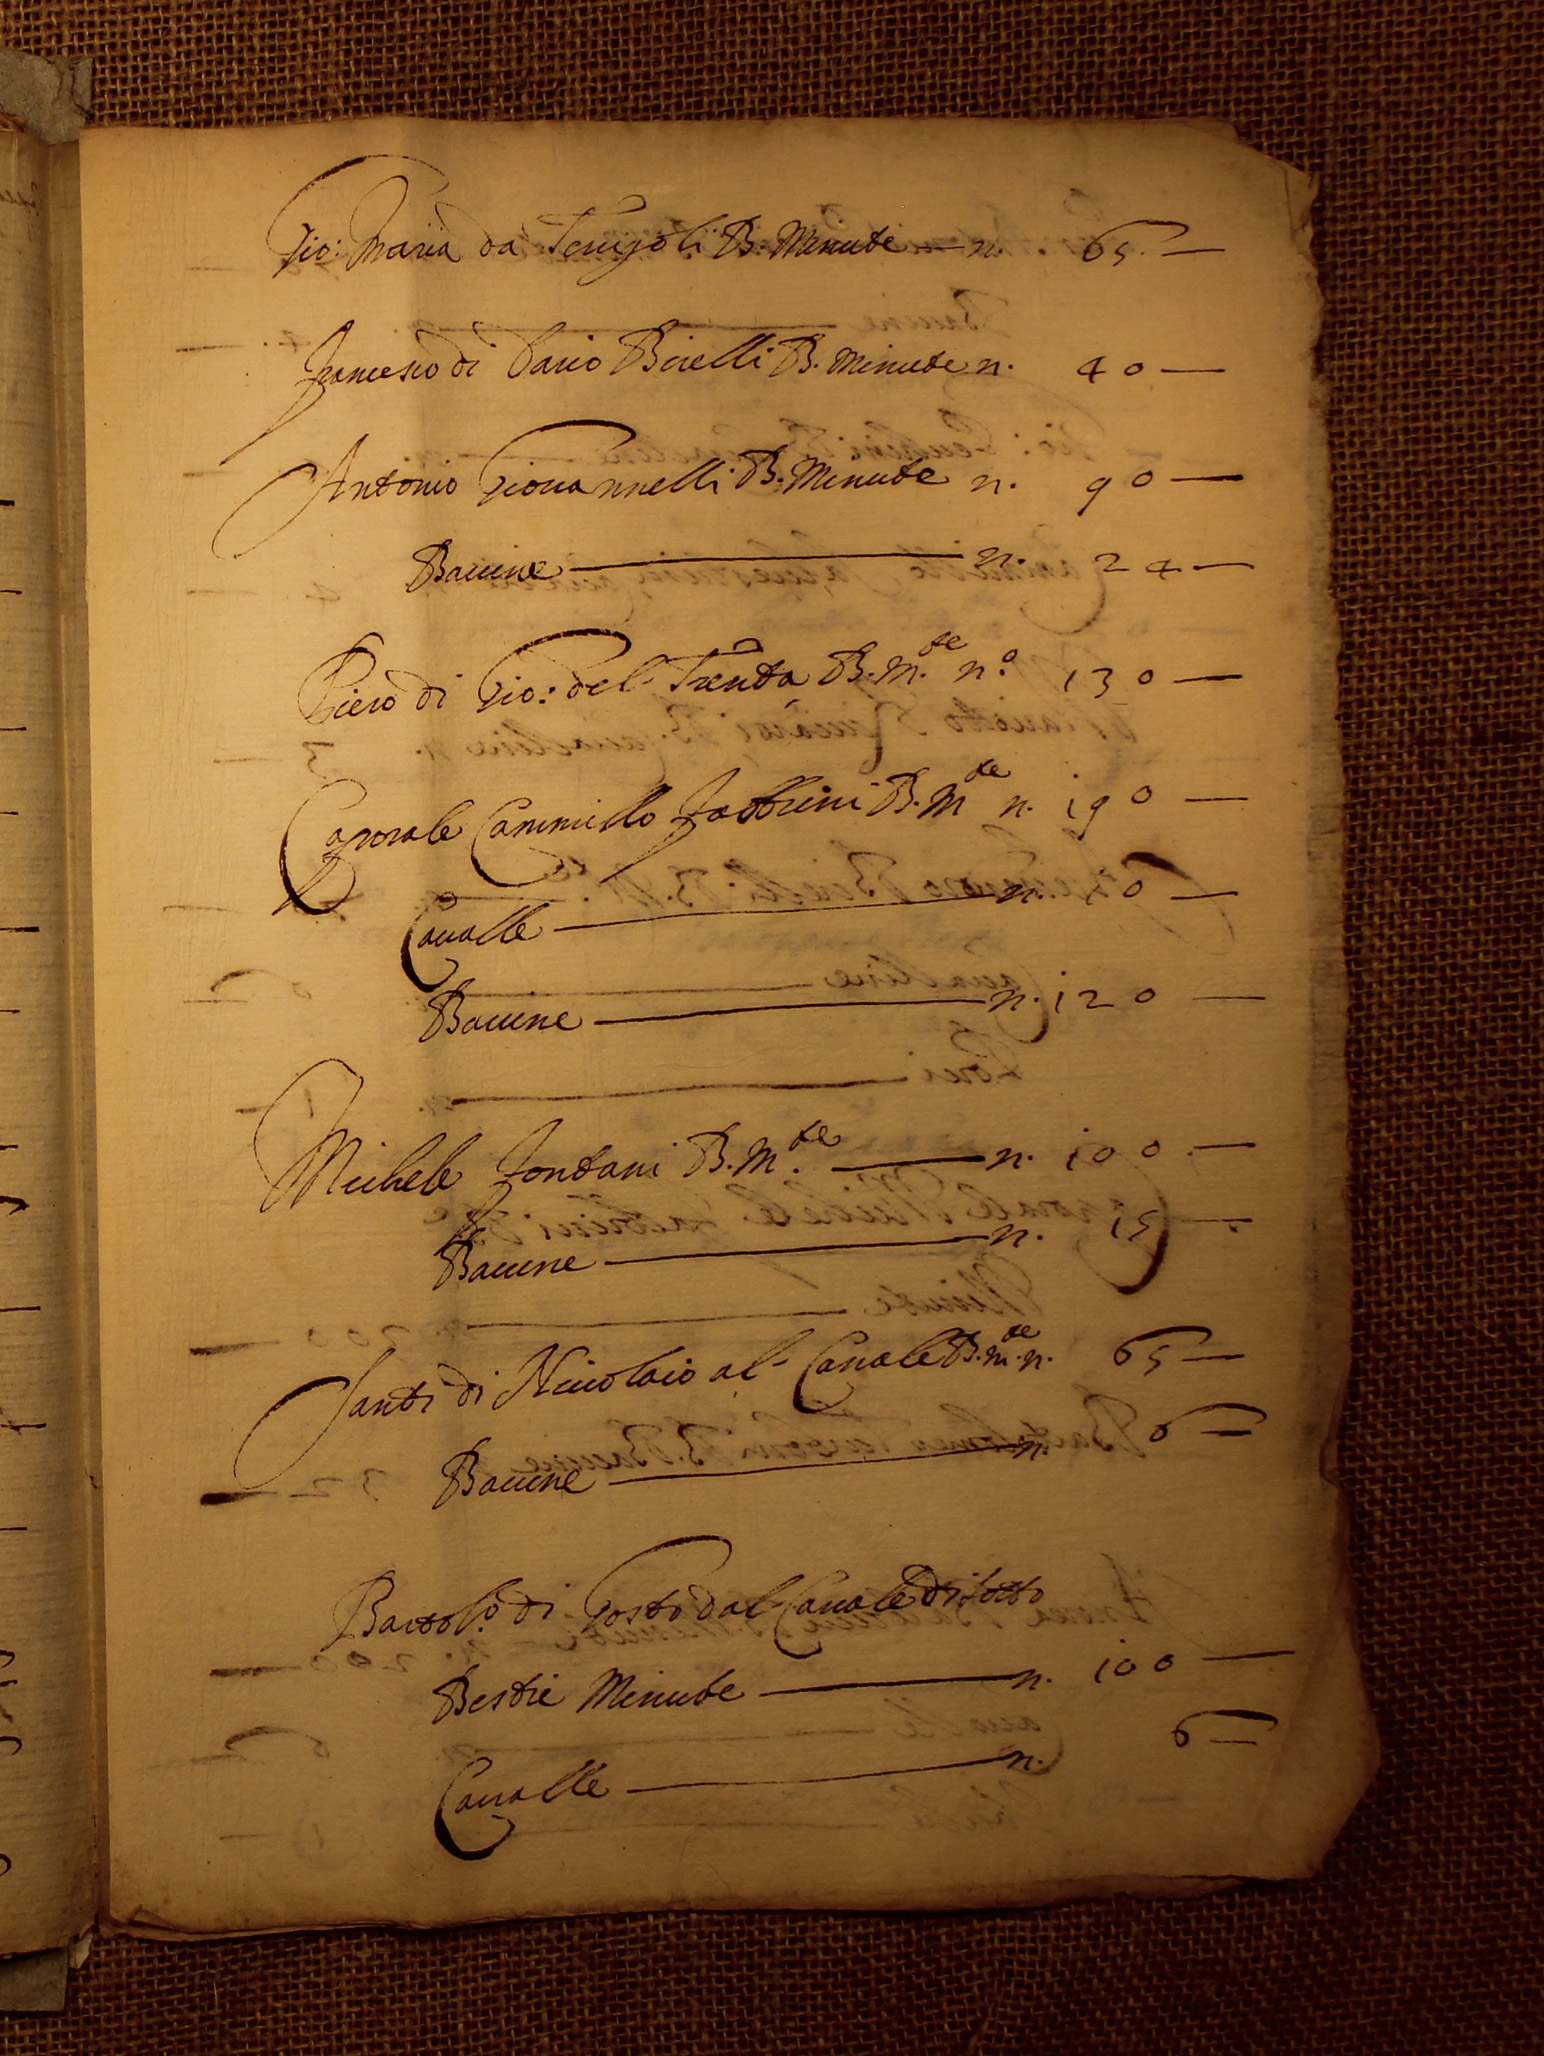 Gio: Maria da B. Minute n. 65
Francesco di Dario Birelli B. Minute n. 40
Antonio Giouannelli B. Minute n. 90
Baccine n. 24
Piero di Gio: del B. M.te n.o 130
Caporale Cammillo Fabbrini B. M.te n. 190
Caualle n. 10
Baccine n. 120
Michele Fontani B. M.te n. 100
Baccine n. 15
Santi di Niccolaio al Canale B. M.te n. 65
Baccine n. 6
Bartol.o di Gosto dal Canale di sotto
Bestie Minute n. 100
Caualle n. 6